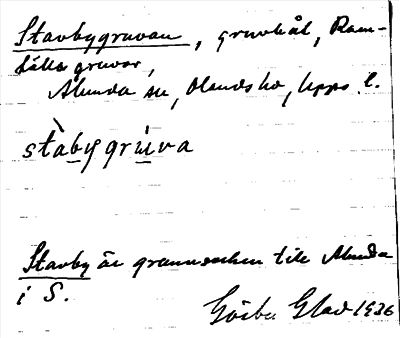 Stavbygruvan, gruvhål, Ram-
hälls gruvor,
Alunda sn, Olands hd, Upps. l.
stàbygrúva
Stavby är grannsocken till Alunda
i S.
Gösta Glad 1936